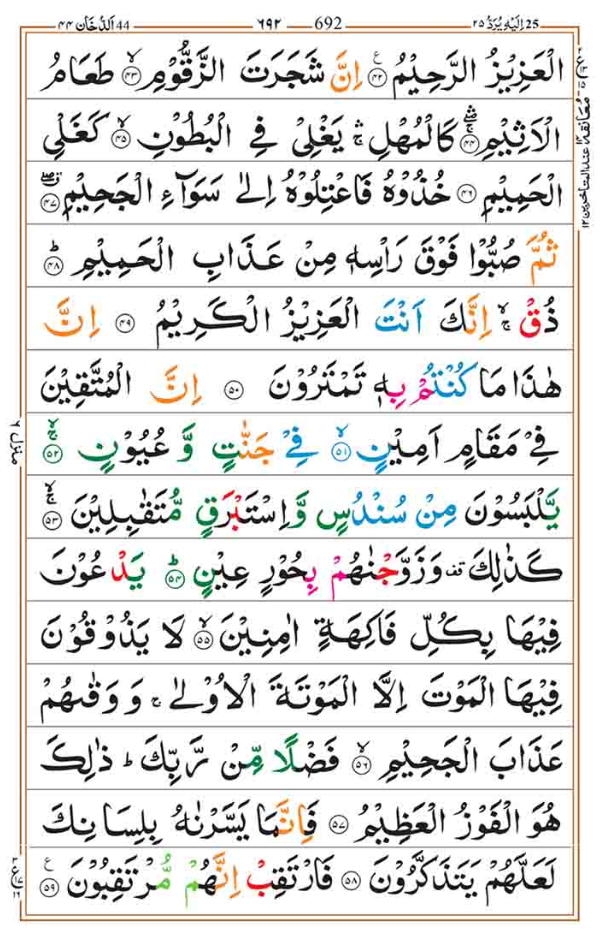 اَلدُّخَان ٤٤ 44 ٦٩٢ 692 اِلَيْهِ يُرَدُّ ٢٥ 25
الْعَزِيْزُ الرَّحِيْمُ ﴿٤٢﴾ اِنَّ شَجَرَتَ الزَّقُّوْمِ ﴿٤٣﴾ طَعَامُ
الْاَثِيْمِ ﴿٤٤﴾ كَالْمُهْلِ ۛۚ يَغْلِىْ فِى الْبُطُوْنِ ﴿٤٥﴾ كَغَلْىِ
الْحَمِيْمِ ﴿٤٦﴾ خُذُوْهُ فَاعْتِلُوْهُ اِلٰى سَوَآءِ الْجَحِيْمِ ﴿٤٧﴾
ثُمَّ صُبُّوْا فَوْقَ رَاْسِهٖ مِنْ عَذَابِ الْحَمِيْمِ ؕ﴿٤٨﴾
ذُقْ ۙۚ اِنَّكَ اَنْتَ الْعَزِيْزُ الْكَرِيْمُ ﴿٤٩﴾ اِنَّ
هٰذَا مَا كُنْتُمْ بِهٖ تَمْتَرُوْنَ ﴿٥٠﴾ اِنَّ الْمُتَّقِيْنَ
فِىْ مَقَامٍ اَمِيْنٍ ۙ﴿٥١﴾ فِىْ جَنّٰتٍ وَّ عُيُوْنٍ ﴿٥٢﴾
يَّلْبَسُوْنَ مِنْ سُنْدُسٍ وَّاِسْتَبْرَقٍ مُّتَقٰبِلِيْنَ ﴿٥٣﴾
كَذٰلِكَ وَزَوَّجْنٰهُمْ بِحُوْرٍ عِيْنٍ ؕ﴿٥٤﴾ يَدْعُوْنَ
فِيْهَا بِكُلِّ فَاكِهَةٍ اٰمِنِيْنَ ۙ﴿٥٥﴾ لَا يَذُوْقُوْنَ
فِيْهَا الْمَوْتَ اِلَّا الْمَوْتَةَ الْاُوْلٰى ۚ وَوَقٰىهُمْ
عَذَابَ الْجَحِيْمِ ۙ﴿٥٦﴾ فَضْلًا مِّنْ رَّبِّكَ ؕ ذٰلِكَ
هُوَ الْفَوْزُ الْعَظِيْمُ ﴿٥٧﴾ فَاِنَّمَا يَسَّرْنٰهُ بِلِسَانِكَ
لَعَلَّهُمْ يَتَذَكَّرُوْنَ ﴿٥٨﴾ فَارْتَقِبْ اِنَّهُمْ مُّرْتَقِبُوْنَ ﴿٥٩﴾
مُعَانَقَة
عند المتاخرين ١٢
منزل ٦